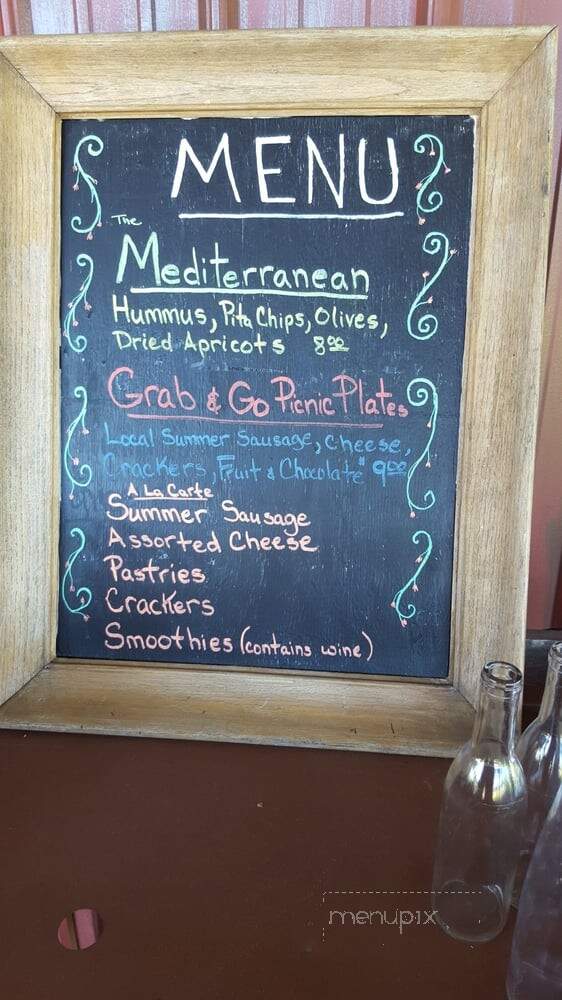 MENU
The
Mediterranean
Hummus, Pita Chips, Olives,
Dried Apricots 8.00
Grab & Go Picnic Plates
Local Summer Sausage, cheese,
Crackers, Fruit & Chocolate 9.00
A La Carte
Summer Sausage
Assorted Cheese
Pastries
Crackers
Smoothies (contains wine)
menupix